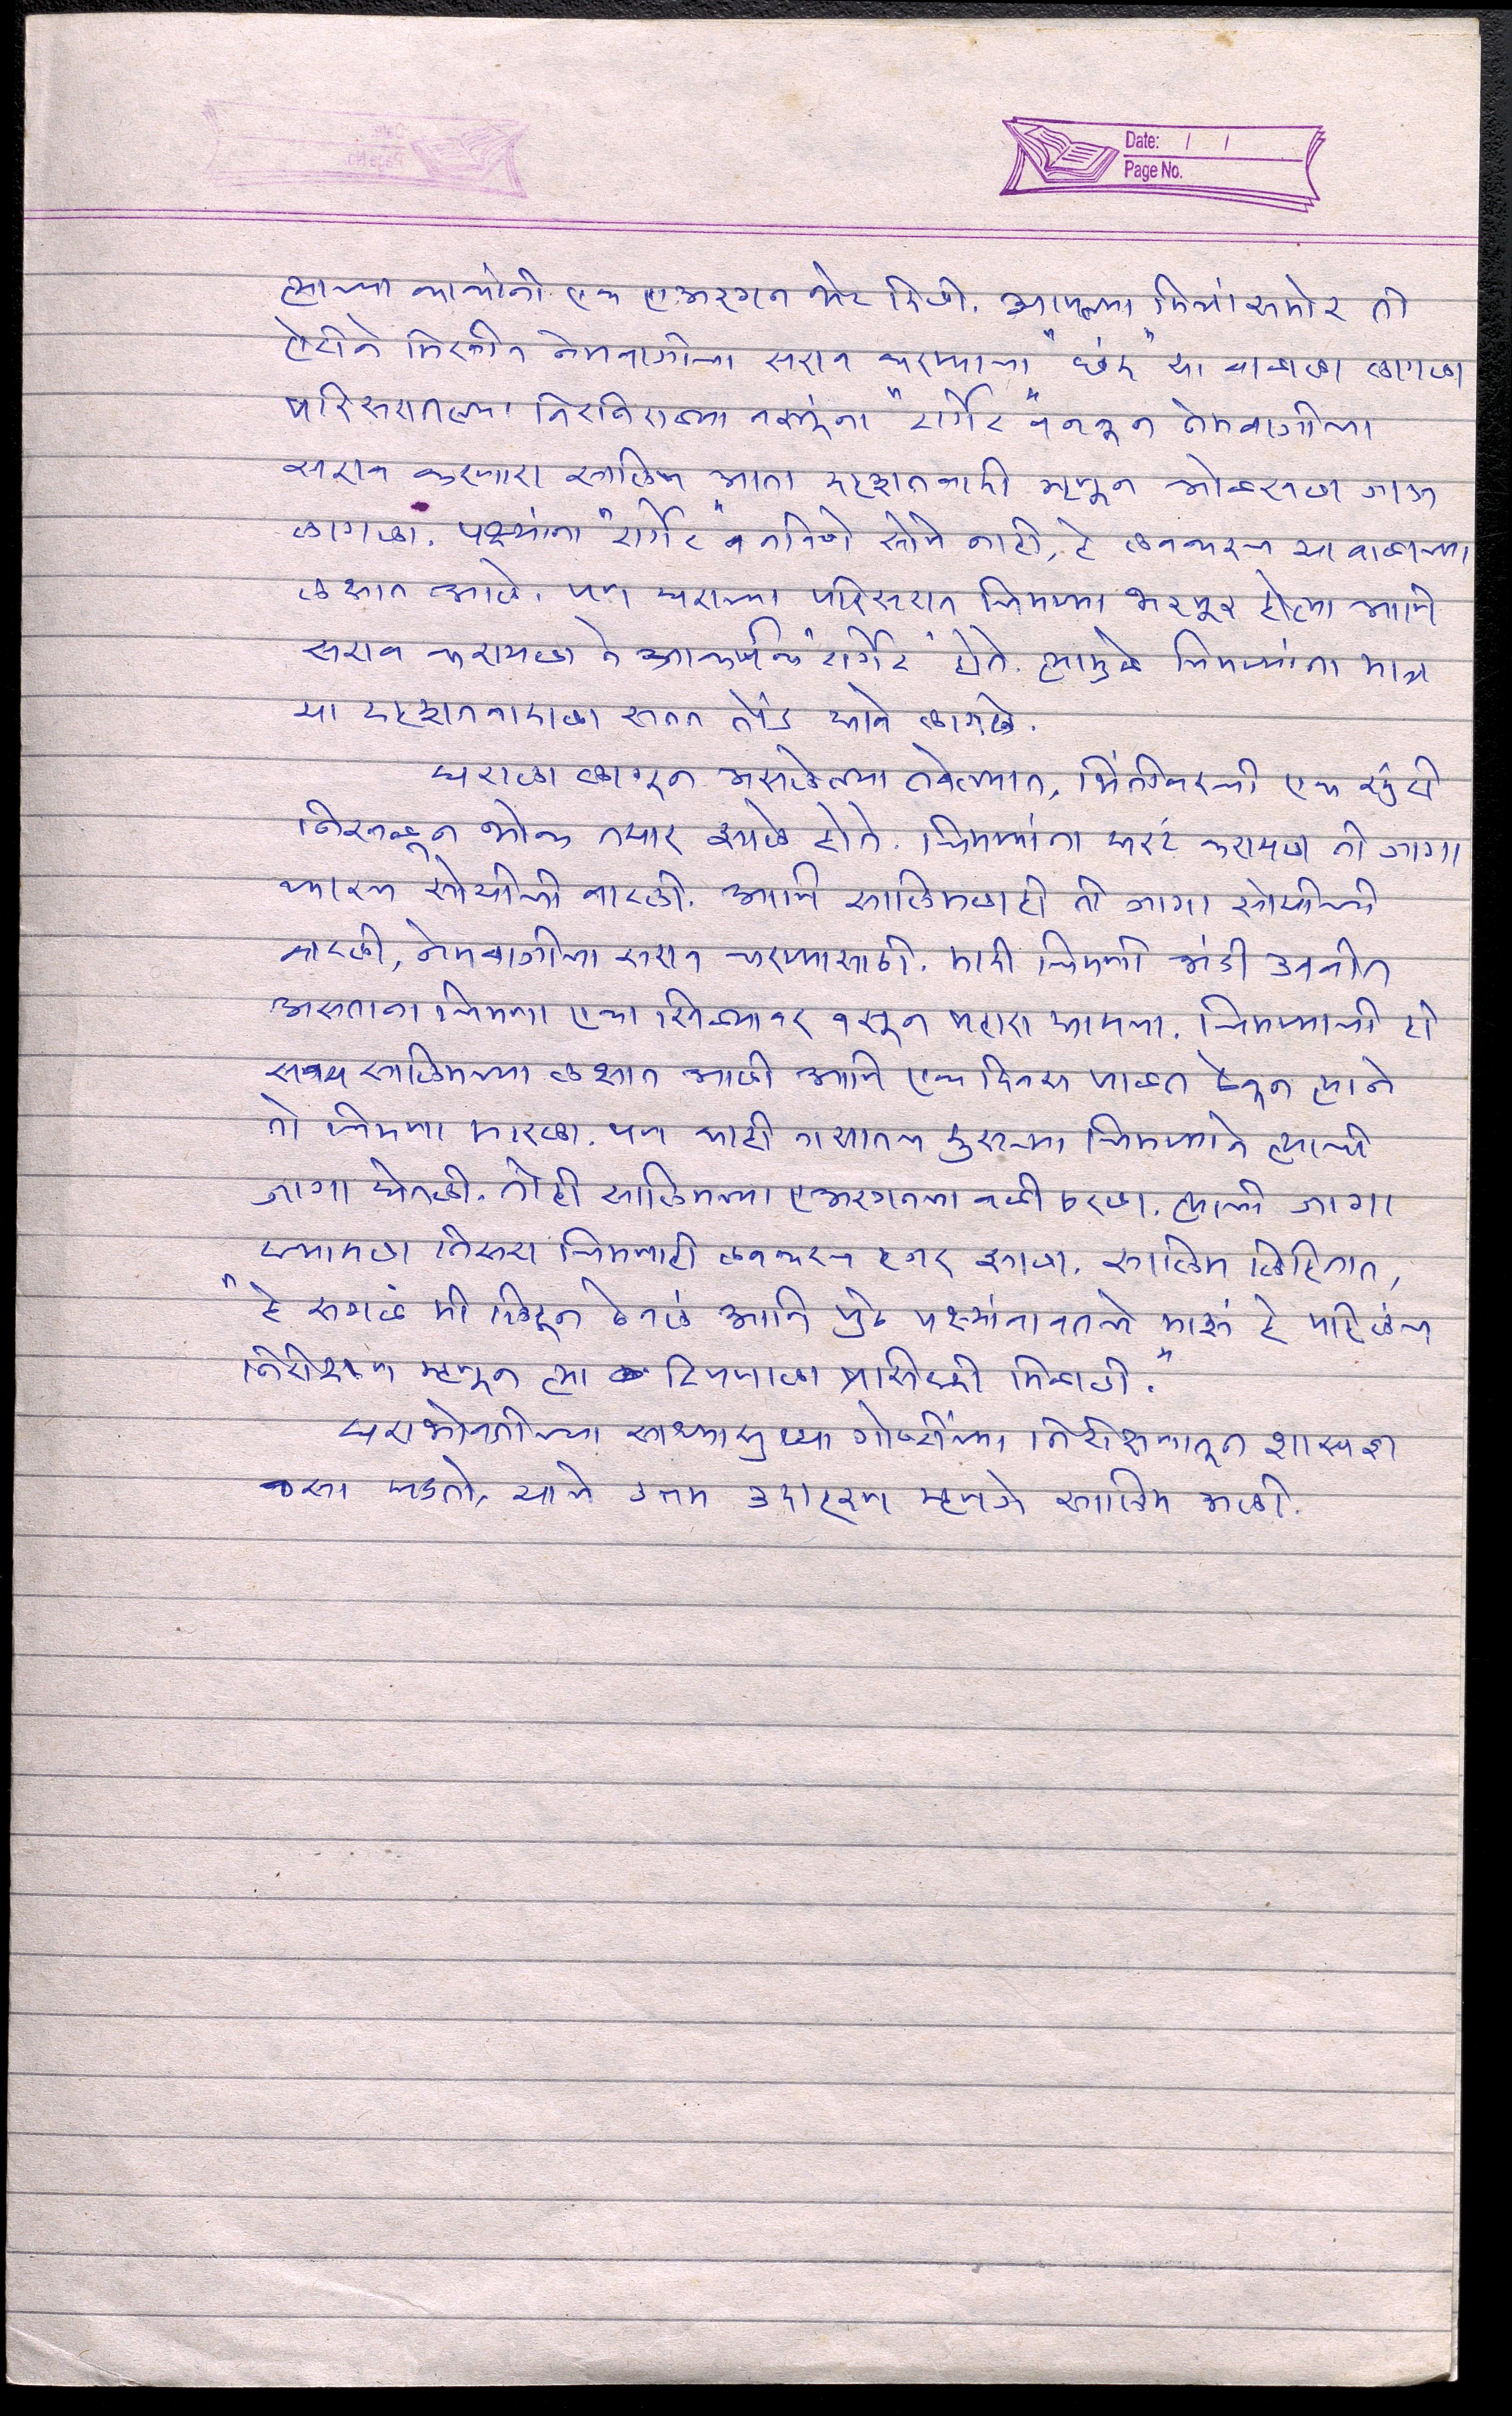 Date: / /
Page No.
त्याच्या काकांनी एक एअरगन भेट दिली. आपल्या मित्रांसमोर ती
ऐटीने मिरवीत नेमबाजीचा सराव करण्याचा "छंद" या बाळाला लागला
परिसरातल्या निरनिराळ्या वस्तूंना "टार्गेट" बनवून नेमबाजीचा
सराव करणारा सालिम आता दहशतवादी म्हणून ओळखला जाऊ
लागला. पक्ष्यांना "टार्गेट" बनविणे सोपे नाही, हे लवकरच या बाळाच्या
लक्षात आले. पण घराच्या परिसरात चिमण्या भरपूर होत्या आणि
सराव करायला ते आकर्षक "टार्गेट" होते. त्यामुळे चिमण्यांना मात्र
या दहशतवादाला सतत तोंड द्यावे लागले.
घराला लागून असलेल्या तबेल्यात, भिंतीवरची एक खुंटी
निखळून भोक तयार झाले होते. चिमण्यांना घरटं करायला ती जागा
फारच सोयीची वाटली. आणि सालिमलाही ती जागा सोयीची
वाटली, नेमबाजीचा सराव करण्यासाठी. मादी चिमणी अंडी उबवीत
असताना चिमणा एका खिळ्यावर बसून पहारा करायचा. चिमण्याची ही
सवय सालिमच्या लक्षात आली आणि एक दिवस पाळत ठेवून त्याने
तो चिमणा मारला. पण काही तासातच दुसऱ्या चिमण्याने त्याची
जागा घेतली. तोही सालिमच्या एअरगनचा बळी ठरला. त्याची जागा
घ्यायला तिसरा चिमणाही लवकरच हजर झाला. सालिम लिहितात,
"हे सगळं मी लिहून ठेवलं आणि पुढे पक्ष्यांबाबतचे माझं हे पहिलंच
निरीक्षण म्हणून त्या टिपणाला प्रसिद्धी मिळाली."
घराभोवतीच्या साध्यासुध्या गोष्टींच्या निरीक्षणातून शास्त्रज्ञ
कसा घडतो, याचे उत्तम उदाहरण म्हणजे सालिम अली.